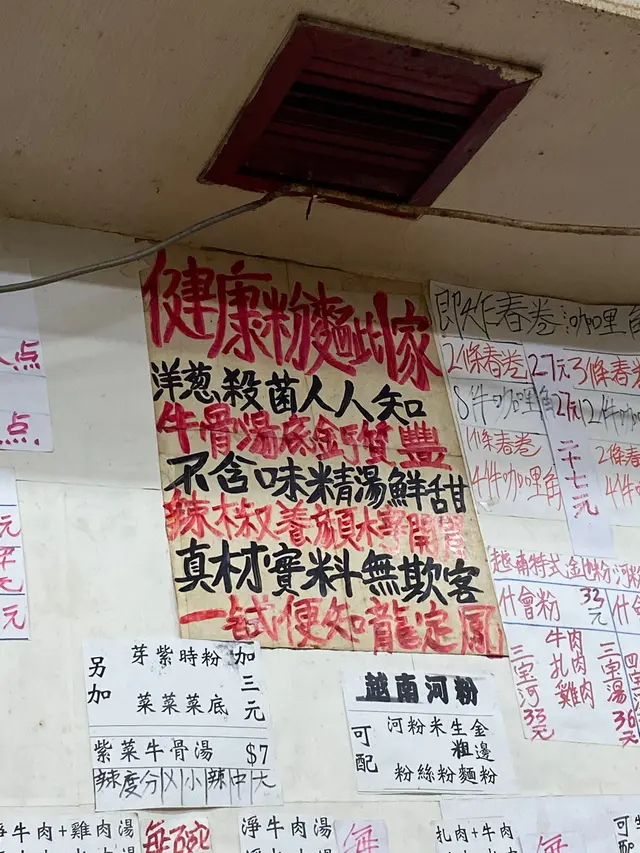 健康粉麵此家
洋葱殺菌人人知
牛骨湯底鈣質豐
不含味精湯鮮甜
辣椒養顏水寧開胃
真材實料無欺客
一試便知龍定風
即炸春卷 咖喱角
2條春卷
8件咖喱角
27元
3條春卷
27元
12件咖喱
1條春卷
4件咖喱角
二十七元
2條春卷
越南特式金邊粉河粉
什會粉 33元
什會
三宝河 33元
牛肉
扎肉
雞肉
三宝湯 36元
点
点
元
元
另加
芽菜
紫菜
時菜
粉底
加三元
紫菜牛骨湯 $7
辣度分 小 辣 中 大
越南河粉
可配
河粉 米粉 生絲 金邊粉
粗麵粉
淨牛肉+雞肉湯
每碗
淨牛肉湯
每
扎肉+牛肉
每
可
配